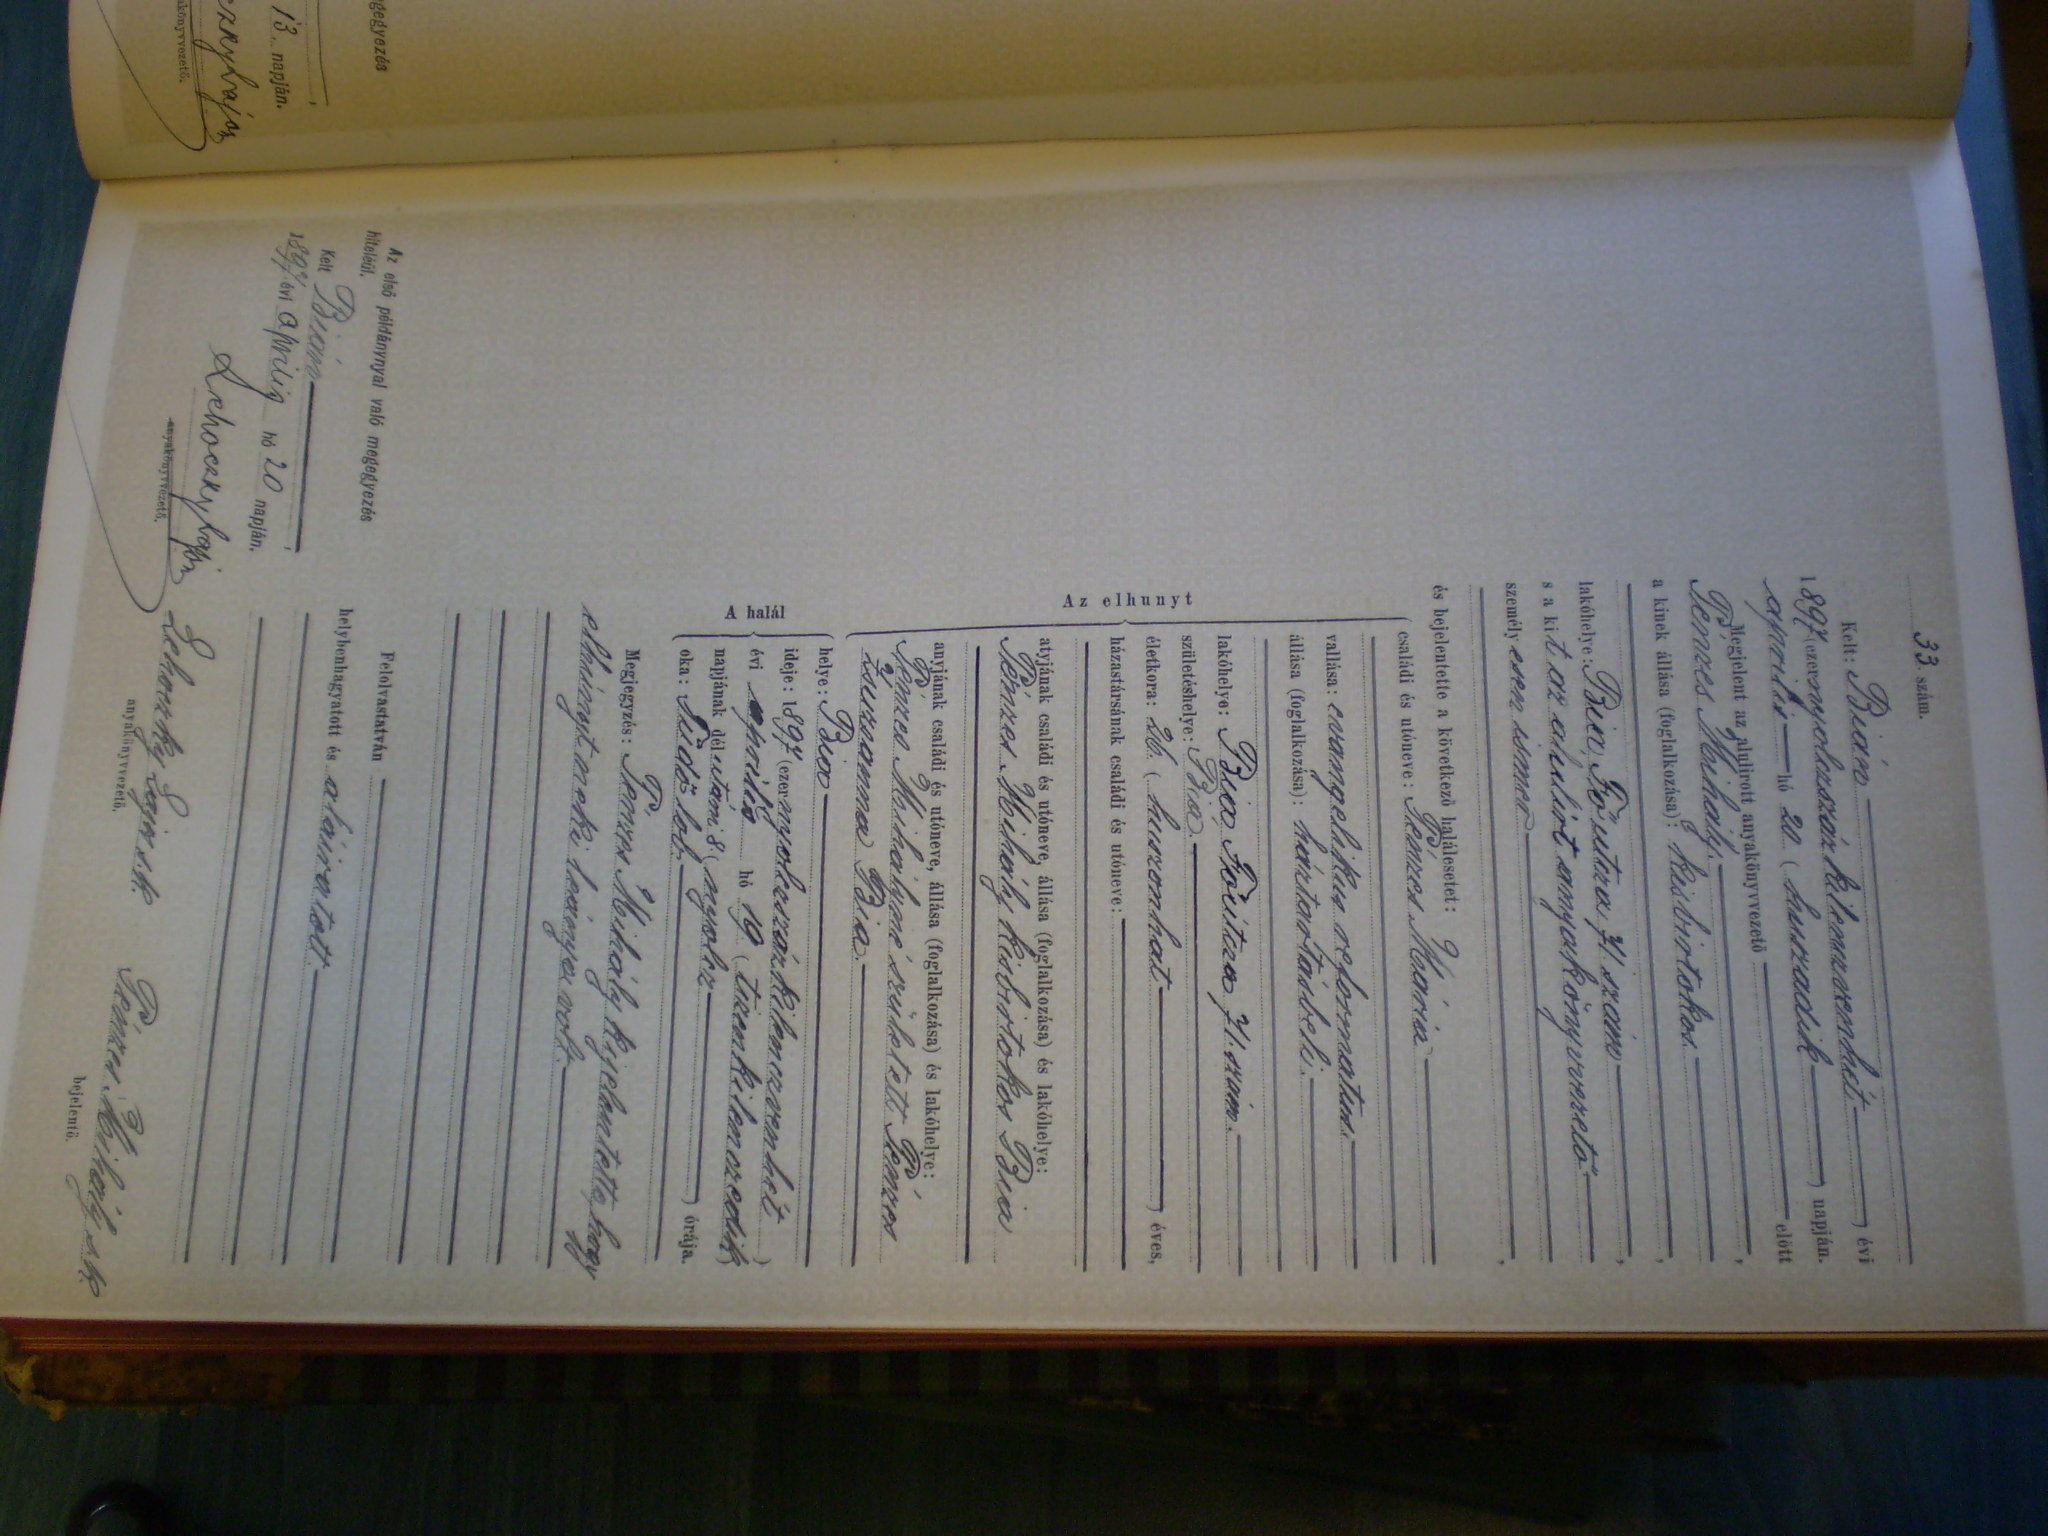 33. szám.
Kelt: Bián
1897 (ezernyolcszázkilenczvenhét) évi
április hó 20. (huszadik) napján.
Megjelent az alulirott anyakönyvvezető előtt
Pénzes Mihály,
a kinek állása (foglalkozása): kisbirtokos,
lakóhelye: Bia, Főutcza 71. szám,
s a kit az alulirt anyakönyvvezető
személyesen ismer,
és bejelentette a következő halálesetet:
Az elhunyt
családi és utóneve: Pénzes Mária.
vallása: evangelikus reformatus.
állása (foglalkozása): háztartásbeli.
lakóhelye: Bia, Főutcza 71. szám.
születéshelye: Bia.
életkora: 26. (huszonhat) éves,
házastársának családi és utóneve:
atyjának családi és utóneve, állása (foglalkozása) és lakóhelye:
Pénzes Mihály kisbirtokos Bia
anyjának családi és utóneve, állása (foglalkozása) és lakóhelye:
Pénzes Mihályné született Pénzes
Zsuzsanna Bia.
A halál
helye: Bia
ideje: 1897 (ezernyolczszázkilenczvenhét)
évi április hó 19 (tizenkilenczedik)
napjának dél utáni 8 (nyolcz) órája.
oka: Tüdőlob.
Megjegyzés: Pénzes Mihály kijelentette, hogy
elhúnyt neki leánya volt.
Felolvastatván
helybenhagyatott és aláiratott.
Lehoczky Lajos s.k.
anyakönyvvezető.
Pénzes Mihály s.k.
bejelentő.
Az első példánynyal való megegyezés
hiteléül.
Kelt Bián,
1897 évi április hó 20 napján.
Lehoczky Lajos
anyakönyvvezető.
gegyezés
13. napján.
czky Lajos
akönyvvezető.